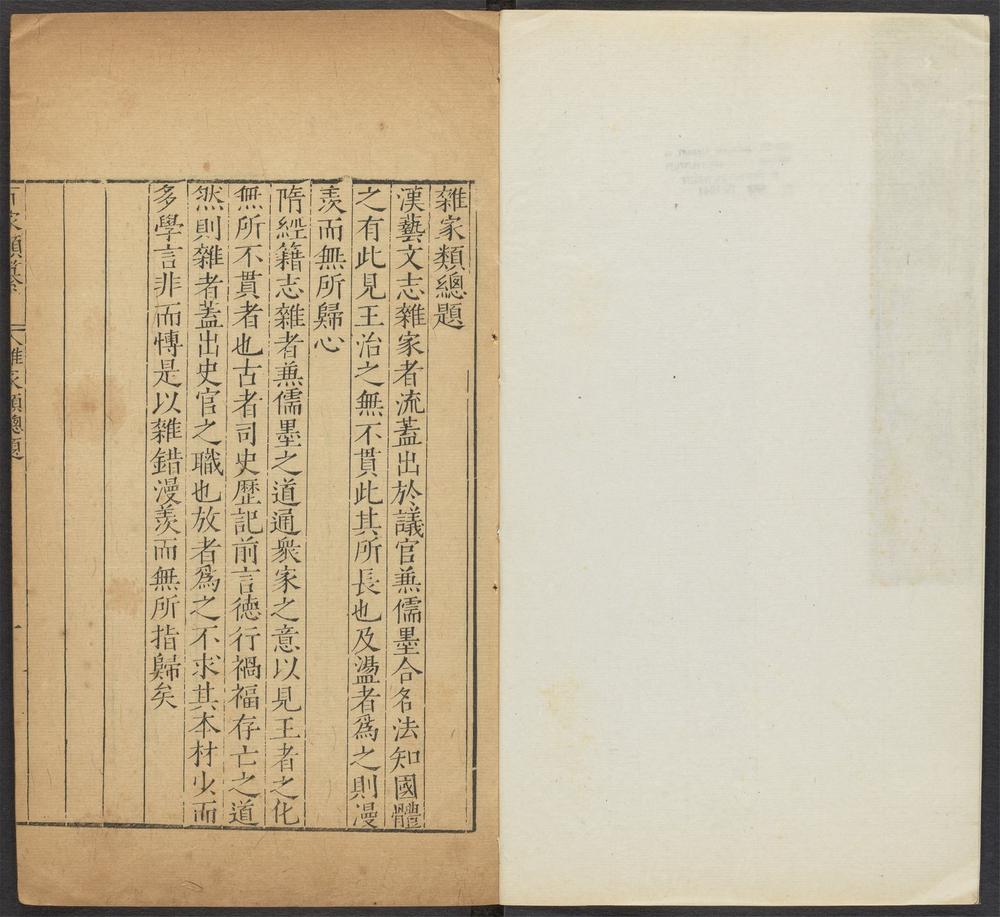 雜家類總題
漢藝文志雜家者流蓋出於議官兼儒墨合名法知國體
之有此見王治之無不貫此其所長也及盪者爲之則漫
羨而無所歸心
隋經籍志雜者兼儒墨之道通衆家之意以見王者之化
無所不貫者也古者司史歷記前言德行禍福存亡之道
然則雜者蓋出史官之職也放者爲之不求其本材少而
多學言非而愽是以雜錯漫羨而無所指歸矣
百家類纂 雜家類總題 一